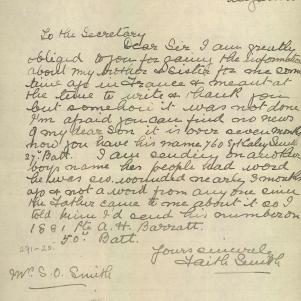 To the Secretary
Dear Sir I am greatly
obliged to you for the information
about my brother & Sister for me some
time ago in France & meant at
the time to write & thank you
but somehow it was not done
I'm afraid you can find no news
of my dear Son it is over seven months
now you have his name 760 Smith
27 Batt. I am sending on another
boys name her people had word
he was wounded nearly months
ago & not a word from any one even
the Father came to me about it so I
told him I'd send his number on
1881 Pte A. H. Barratt.
50 Batt.
Yours sincerely
Faith Smith
Mrs S. O. Smith